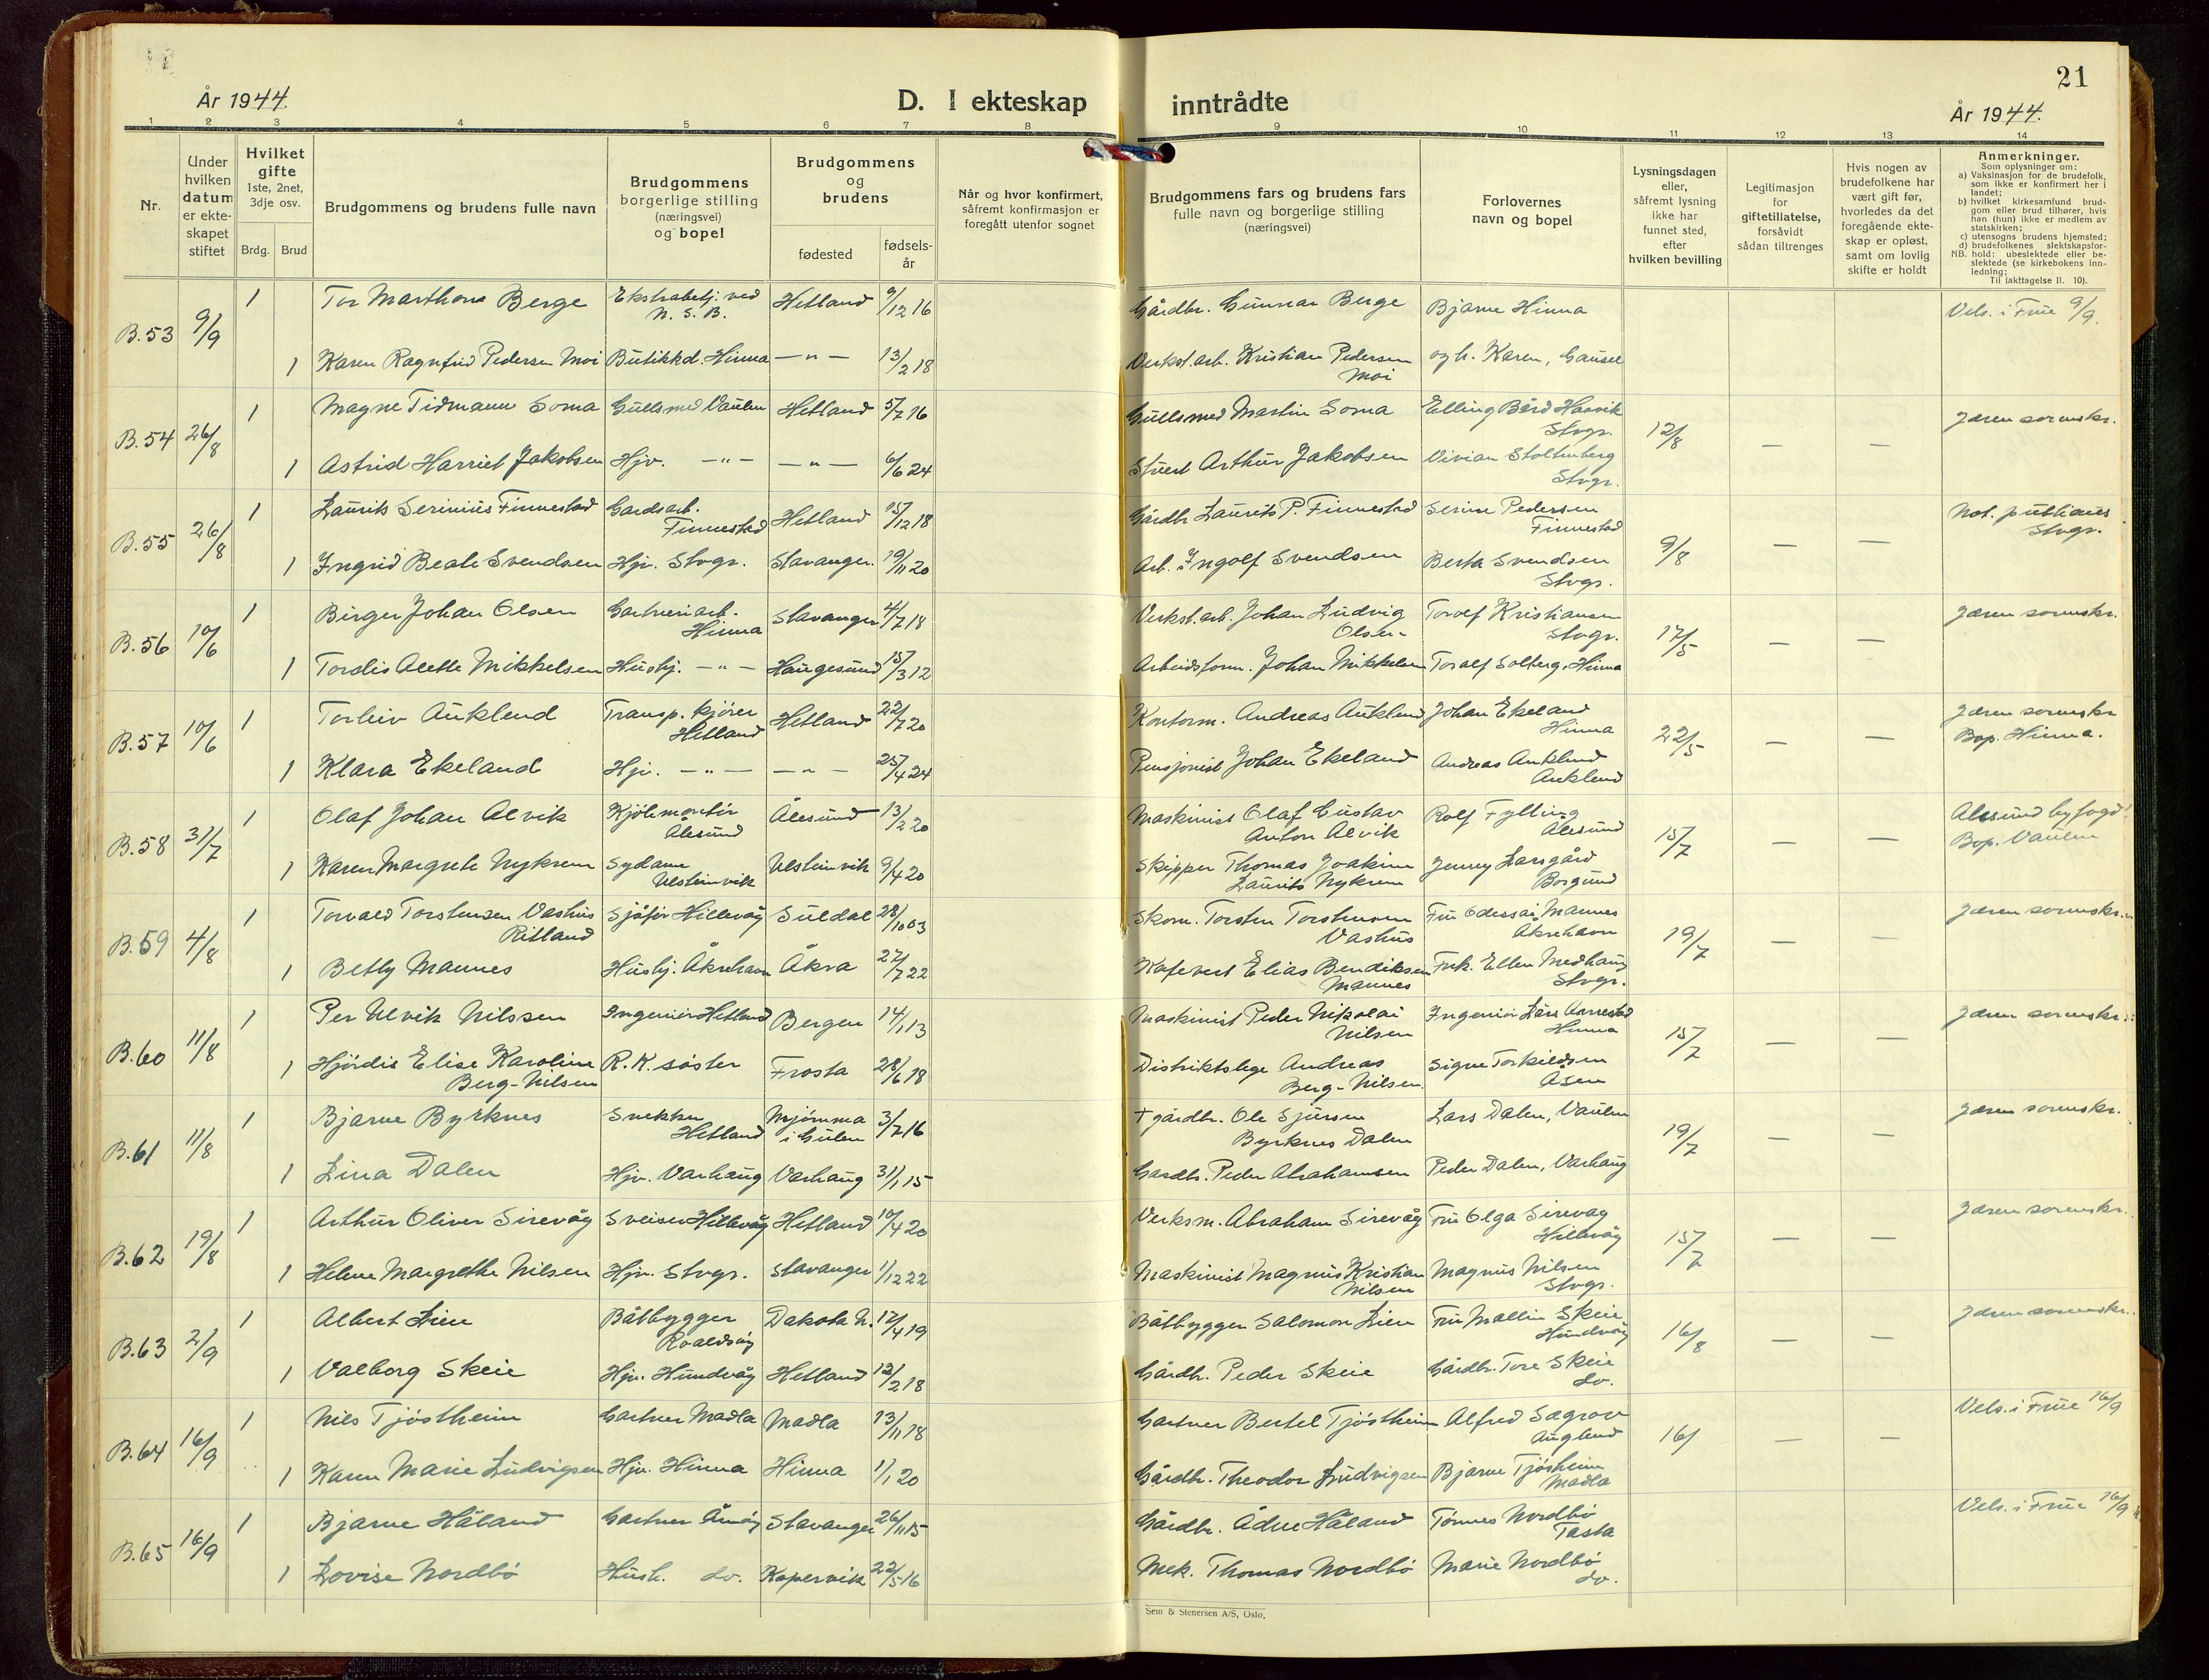 21
År 1944.
D. I ekteskap inntrådte
År 1944.
1 2 3 4 5 6 7 8 9 10 11 12 13 14
Nr.
Under hvilken datum er ekteskapet stiftet
Hvilket gifte 1ste, 2net, 3dje osv.
Brdg. Brud
Brudgommens og brudens fulle navn
Brudgommens borgerlige stilling (næringsvei) og bopel
Brudgommens og brudens
fødested
fødsels-år
Når og hvor konfirmert, såfremt konfirmasjon er foregått utenfor sognet
Brudgommens fars og brudens fars fulle navn og borgerlige stilling (næringsvei)
Forlovernes navn og bopel
Lysningsdagen eller, såfremt lysning ikke har funnet sted, efter hvilken bevilling
Legitimasjon for giftetillatelse, forsåvidt sådan tiltrenges
Hvis nogen av brudefolkene har vært gift før, hvorledes da det foregående ekteskap er opløst, samt om lovlig skifte er holdt
Anmerkninger.
Som oplysninger om:
a) Vaksinasjon for de brudefolk, som ikke er konfirmert her i landet;
b) hvilket kirkesamfund brudgom eller brud tilhører, hvis han (hun) ikke er medlem av statskirken;
c) utensogns brudens hjemsted;
d) brudefolkenes slektskapsforhold: ubeslektede eller beslektede (se kirkebokens innledning;
NB.
Til iakttagelse II. 10).
B.53 9/9 1 Tor Marthon Berge Ekstrabetj. ved N.S.B. Hetland 9/12 16 Gårdbr. Gunnar Berge Bjarne Hinna Vels. i Frue 9/9.
1 Karen Ragnfrid Pedersen Moi Butikkd. Hinna —"— 13/2 18 Verkst.arb. Kristian Pedersen Moi og h. Karen, Gausel
B.54 26/8 1 Magne Tidmann Soma Gullsmed Vaulen Hetland 5/7 16 Gullsmed Martin Soma Elling Bård Haavik Stvgr. 12/8 — — Jæren sorenskr.
1 Astrid Harriet Jakobsen Hjv. —"— —"— 6/6 24 Stuert Arthur Jakobsen Vivian Stoltenberg Stvgr.
B.55 26/8 1 Laurits Serinius Finnestad Gardsarb. Finnestad Hetland 15/12 18 Gårdbr. Laurits P. Finnestad Serine Pedersen Finnestad 9/8 — — Not. publicus Stvgr.
1 Ingrid Beate Svendsen Hjv. Stvgr. Stavanger. 19/11 20 Arb. Ingolf Svendsen Berta Svendsen Stvgr.
B.56 10/6 1 Birger Johan Olsen Gartneriarb. Hinna Stavanger 4/7 18 Verkst.arb. Johan Ludvig Olsen- Torolf Kristiansen Stvgr. 17/5 — — Jæren sorenskr.
1 Tordis Alette Mikkelsen Hushj. —"— Haugesund 15/3 12 Arbeidsform. Johan Mikkelsen Toralf Solberg, Hinna
B.57 10/6 1 Torleiv Auklend Transp. kjører Hetland Hetland 22/7 20 Kontorm. Andreas Auklend Johan Ekeland Hinna 22/5 — — Jæren sorenskr. Bop. Hinna.
1 Klara Ekeland Hjv. —"— —"— 25/4 24 Pensjonist Johan Ekeland Andreas Auklend Auklend
B.58 31/7 1 Olaf Johan Alvik Kjölemontör Ålesund Ålesund 13/2 20 Maskinist Olaf Gustav Anton Alvik Rolf Fylling Ålesund 15/7 — — Ålesund byfogd. Bop. Vaulen
1 Karen Margrete Nykrem Sydame Ulsteinvik Ulsteinvik 9/4 20 Skipper Thomas Joakim Laurits Nykrem Jenny Larsgård Borgund
B.59 4/8 1 Torvald Torstensen Vashus Ritland Sjåför Hillevåg Suldal 28/10 03 Skom. Torsten Torstensen Vashus Fru Odessa Mannes Åkrehavn 19/7 — — Jæren sorenskr.
1 Betty Mannes Hushj. Åkrehavn Åkra 27/7 22 Kafevert Elias Bendiksen Mannes Frk. Ellen Medhaug Stvgr.
B.60 11/8 1 Per Ulvik Nilssen Ingeniör Hetland Bergen 14/1 13 Maskinist Peder Nikolai Nilsen Ingeniör Lars Aarrestad Hinna 15/7 — — Jæren sorenskr.
1 Hjördis Elise Karoline Berg-Nilsen R.K. söster Frosta 28/6 18 Distriktslege Andreas Berg-Nilsen Signe Torkildsen Åsen
B.61 11/8 1 Bjarne Byrknes Snekker Hetland Mjömma i Gulen 3/7 16 † gårdbr. Ole Sjursen Byrknes Dalen Lars Dalen, Vaulen 19/7 — — Jæren sorenskr.
1 Lina Dalen Hjv. Varhaug Varhaug 31/1 15 Gardbr. Peder Abrahamsen Peder Dalen, Varhaug
B.62 19/8 1 Arthur Oliver Sirevåg Sveiser Hillevåg Hetland 10/4 20 Verksm. Abraham Sirevåg Fru Olga Sirevåg Hillevåg 15/7 — — Jæren sorenskr.
1 Helene Margrethe Nilsen Hjv. Stvgr. Stavanger 1/12 22 Maskinist Magnus Kristian Nilsen Magnus Nilsen Stvgr.
B.63 2/9 1 Albert Lien Båtbygger Roaldsöy Dakota N. 17/4 19 Båtbygger Salomon Lien Fru Mallin Skeie Hundvåg 16/8 — — Jæren sorenskr.
1 Valborg Skeie Hjv. Hundvåg Hetland 12/2 18 Gårdbr. Peder Skeie Gårdbr. Tore Skeie do.
B.64 16/9 1 Nils Tjöstheim Gartner Madla Madla 13/11 18 Gartner Bertel Tjöstheim Alfred Sægrov Augland 16/ — — Vels. i Frue 16/9
1 Karen Marie Ludvigsen Hjv. Hinna Hinna 1/1 20 Gårdbr. Theodor Ludvigsen Bjarne Tjöstheim Madla
B.65 16/9 1 Bjarne Håland Gartner Åmöy Stavanger 26/11 15 Gårdbr. Ådne Håland Tönnes Nordbö Tasta Vels. i Frue 16/9
1 Lovise Nordbö Hush. do. Kopervik 22/5 16 Mek. Thomas Nordbö Marie Nordbö do.
Sem & Stenersen A/S, Oslo.